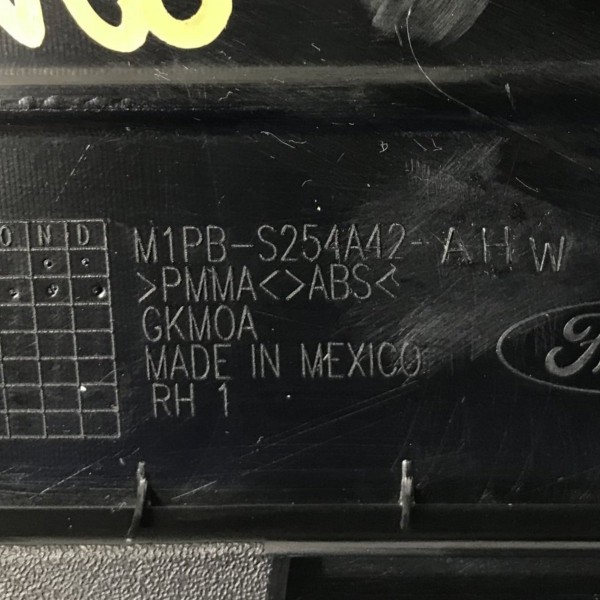 O N D
M1PB-S254A42-AHW
>PMMA<>ABS<
GKMOA
MADE IN MEXICO
RH 1